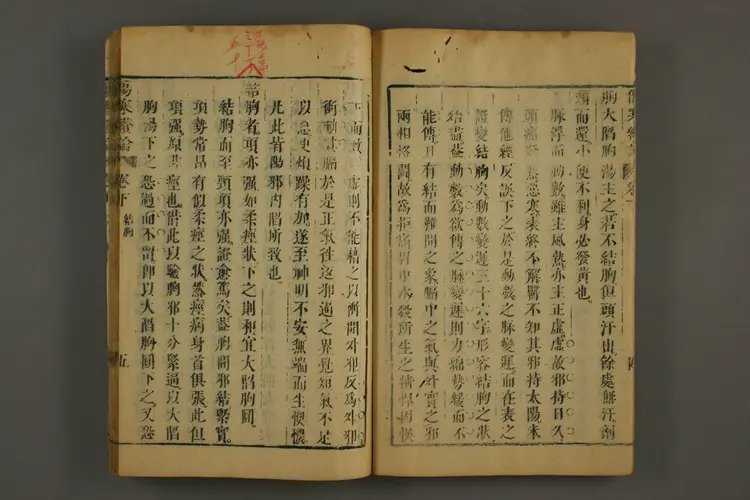 胸大陷胸湯主之若不結胸但頭汗出餘處無汗劑
頸而還小便不利身必發黃也
脈浮而動數雖主風熱亦主正虛虛故邪持日久
頭痛發熱惡寒表終不解醫不知其邪持太陽未
傳他經反誤下之於是動數之脈變遲而在表之
證變結胸矣動數變遲三十六字形容結胸之狀
殆盡蓋動數為欲傳之脈變遲則力綿勢緩而不
能傳且有結而難開之象膈中之氣與外實之邪
兩相格鬭故為拒痛胃中水穀所生之精悍因悞
下而致虛則不能藉之以衝開外邪反為外邪
衝動其膈於是正氣往返邪逼之界覺短氣不足
以息更煩躁有加遂至神明不安無端而生懊憹
凡此皆陽邪內陷所致也
結胸者項亦強如柔痙狀下之則和宜大陷胸圓
結胸而至頸項亦強證愈篤矣蓋胸間邪結緊實
項勢常昂有似柔痙之狀然痙病身首俱張此但
項強原非痙也借此以驗胸邪十分緊逼以大陷
胸湯下之恐過而不留即以大陷胸圓下之又恐
傷寒尚論 卷下 結胸
五